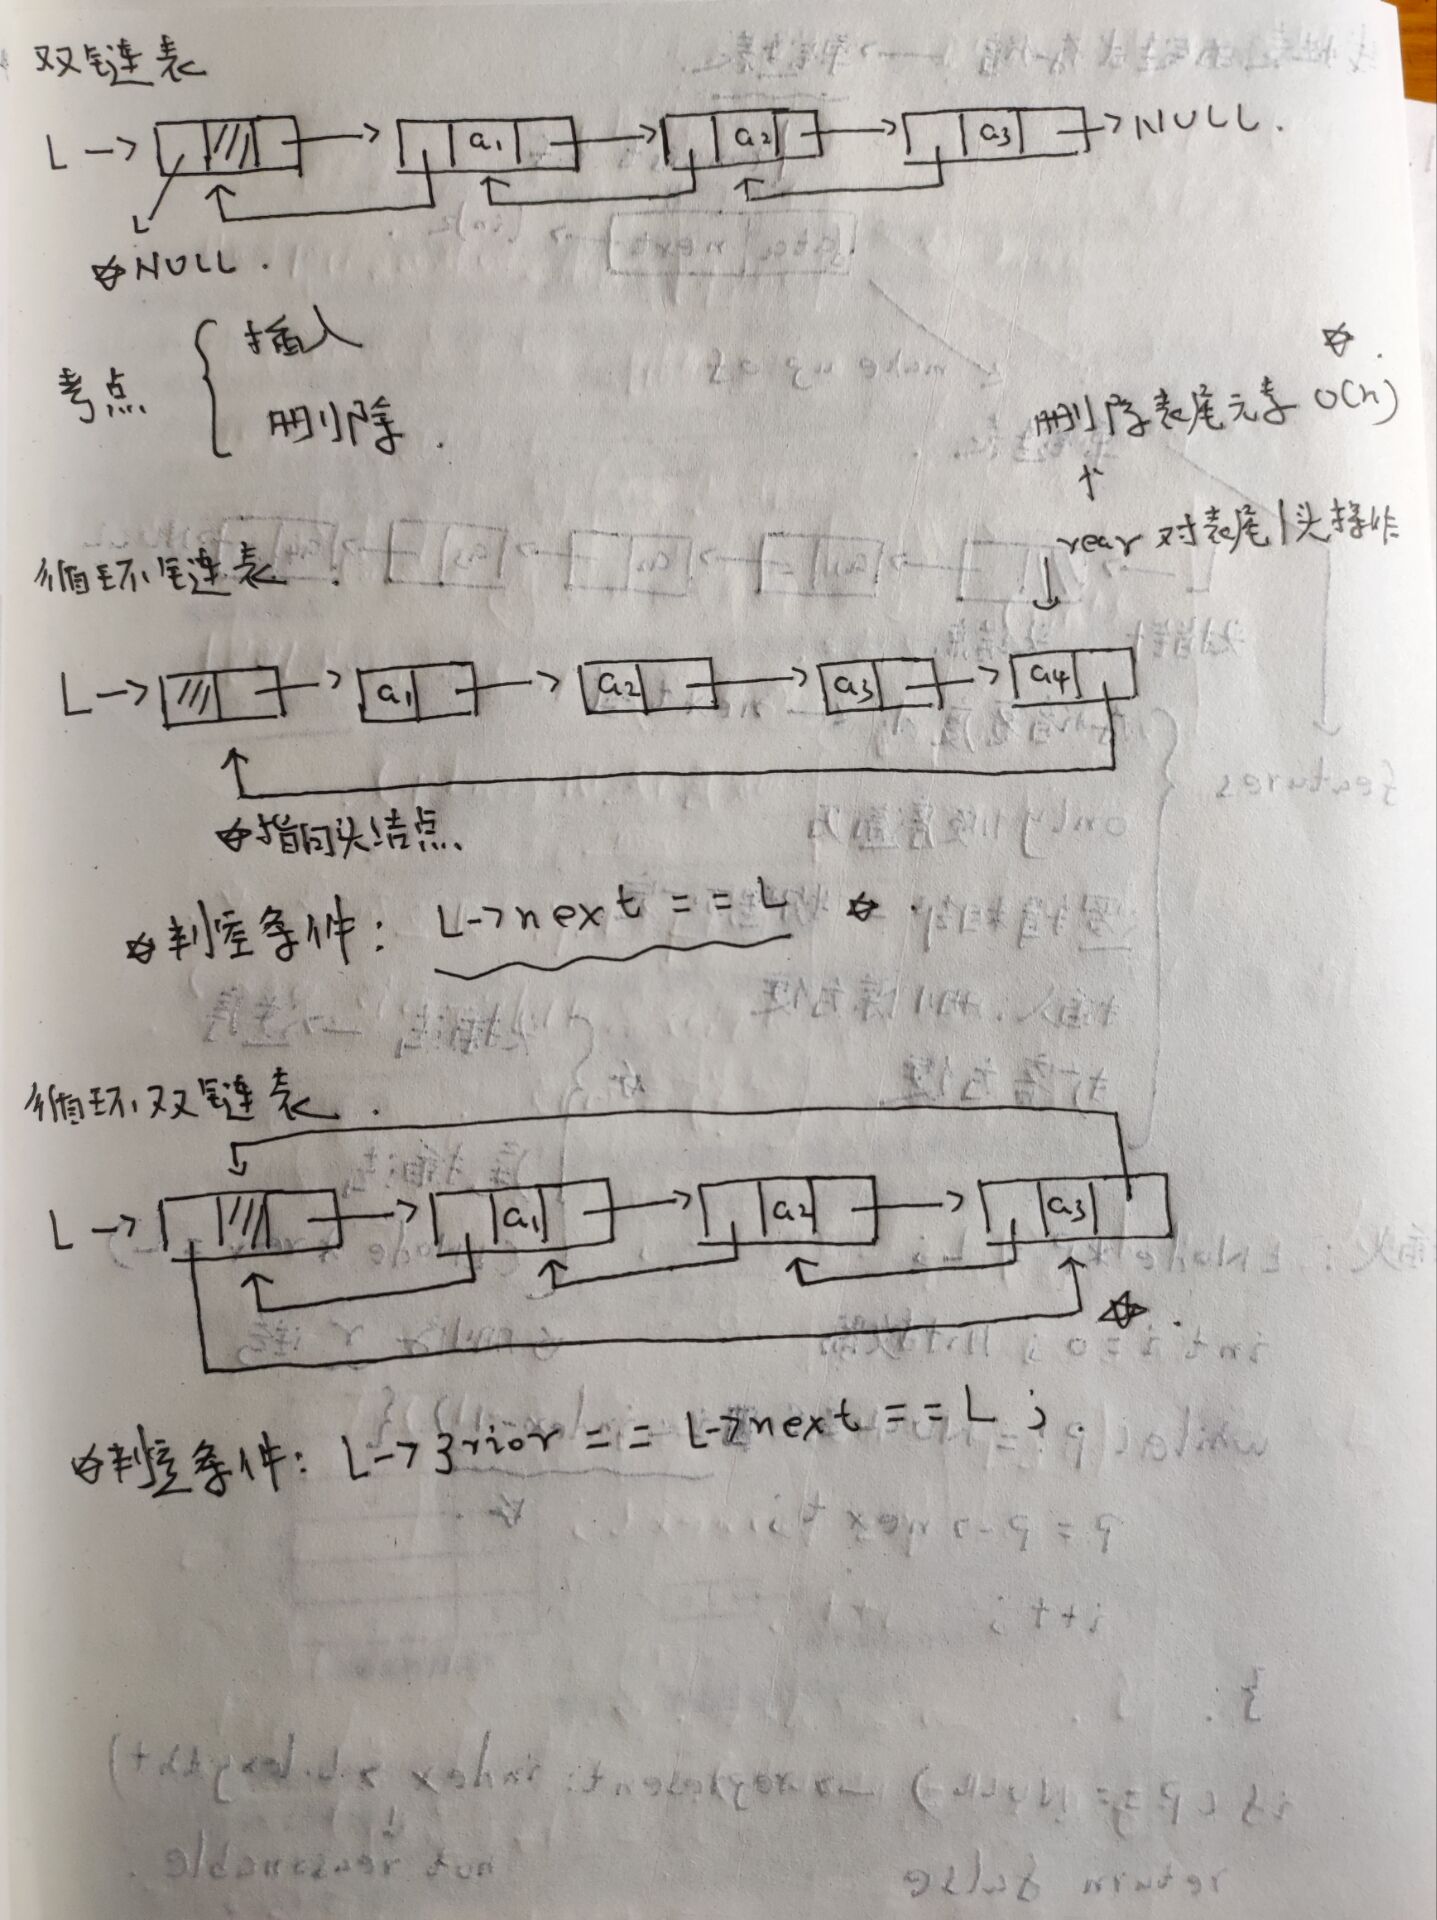 双链表
L → a1 a2 a3 → NULL.
☆NULL.
考点 { 插入
删除.
☆.
删除表尾元素 O(n)
↑
rear 对表尾|头操作
循环链表.
L → a1 → a2 → a3 → a4
☆指向头结点
☆判空条件: L->next == L ☆.
循环双链表.
L → a1 a2 a3
☆.
☆判空条件: L->prior == L->next == L;